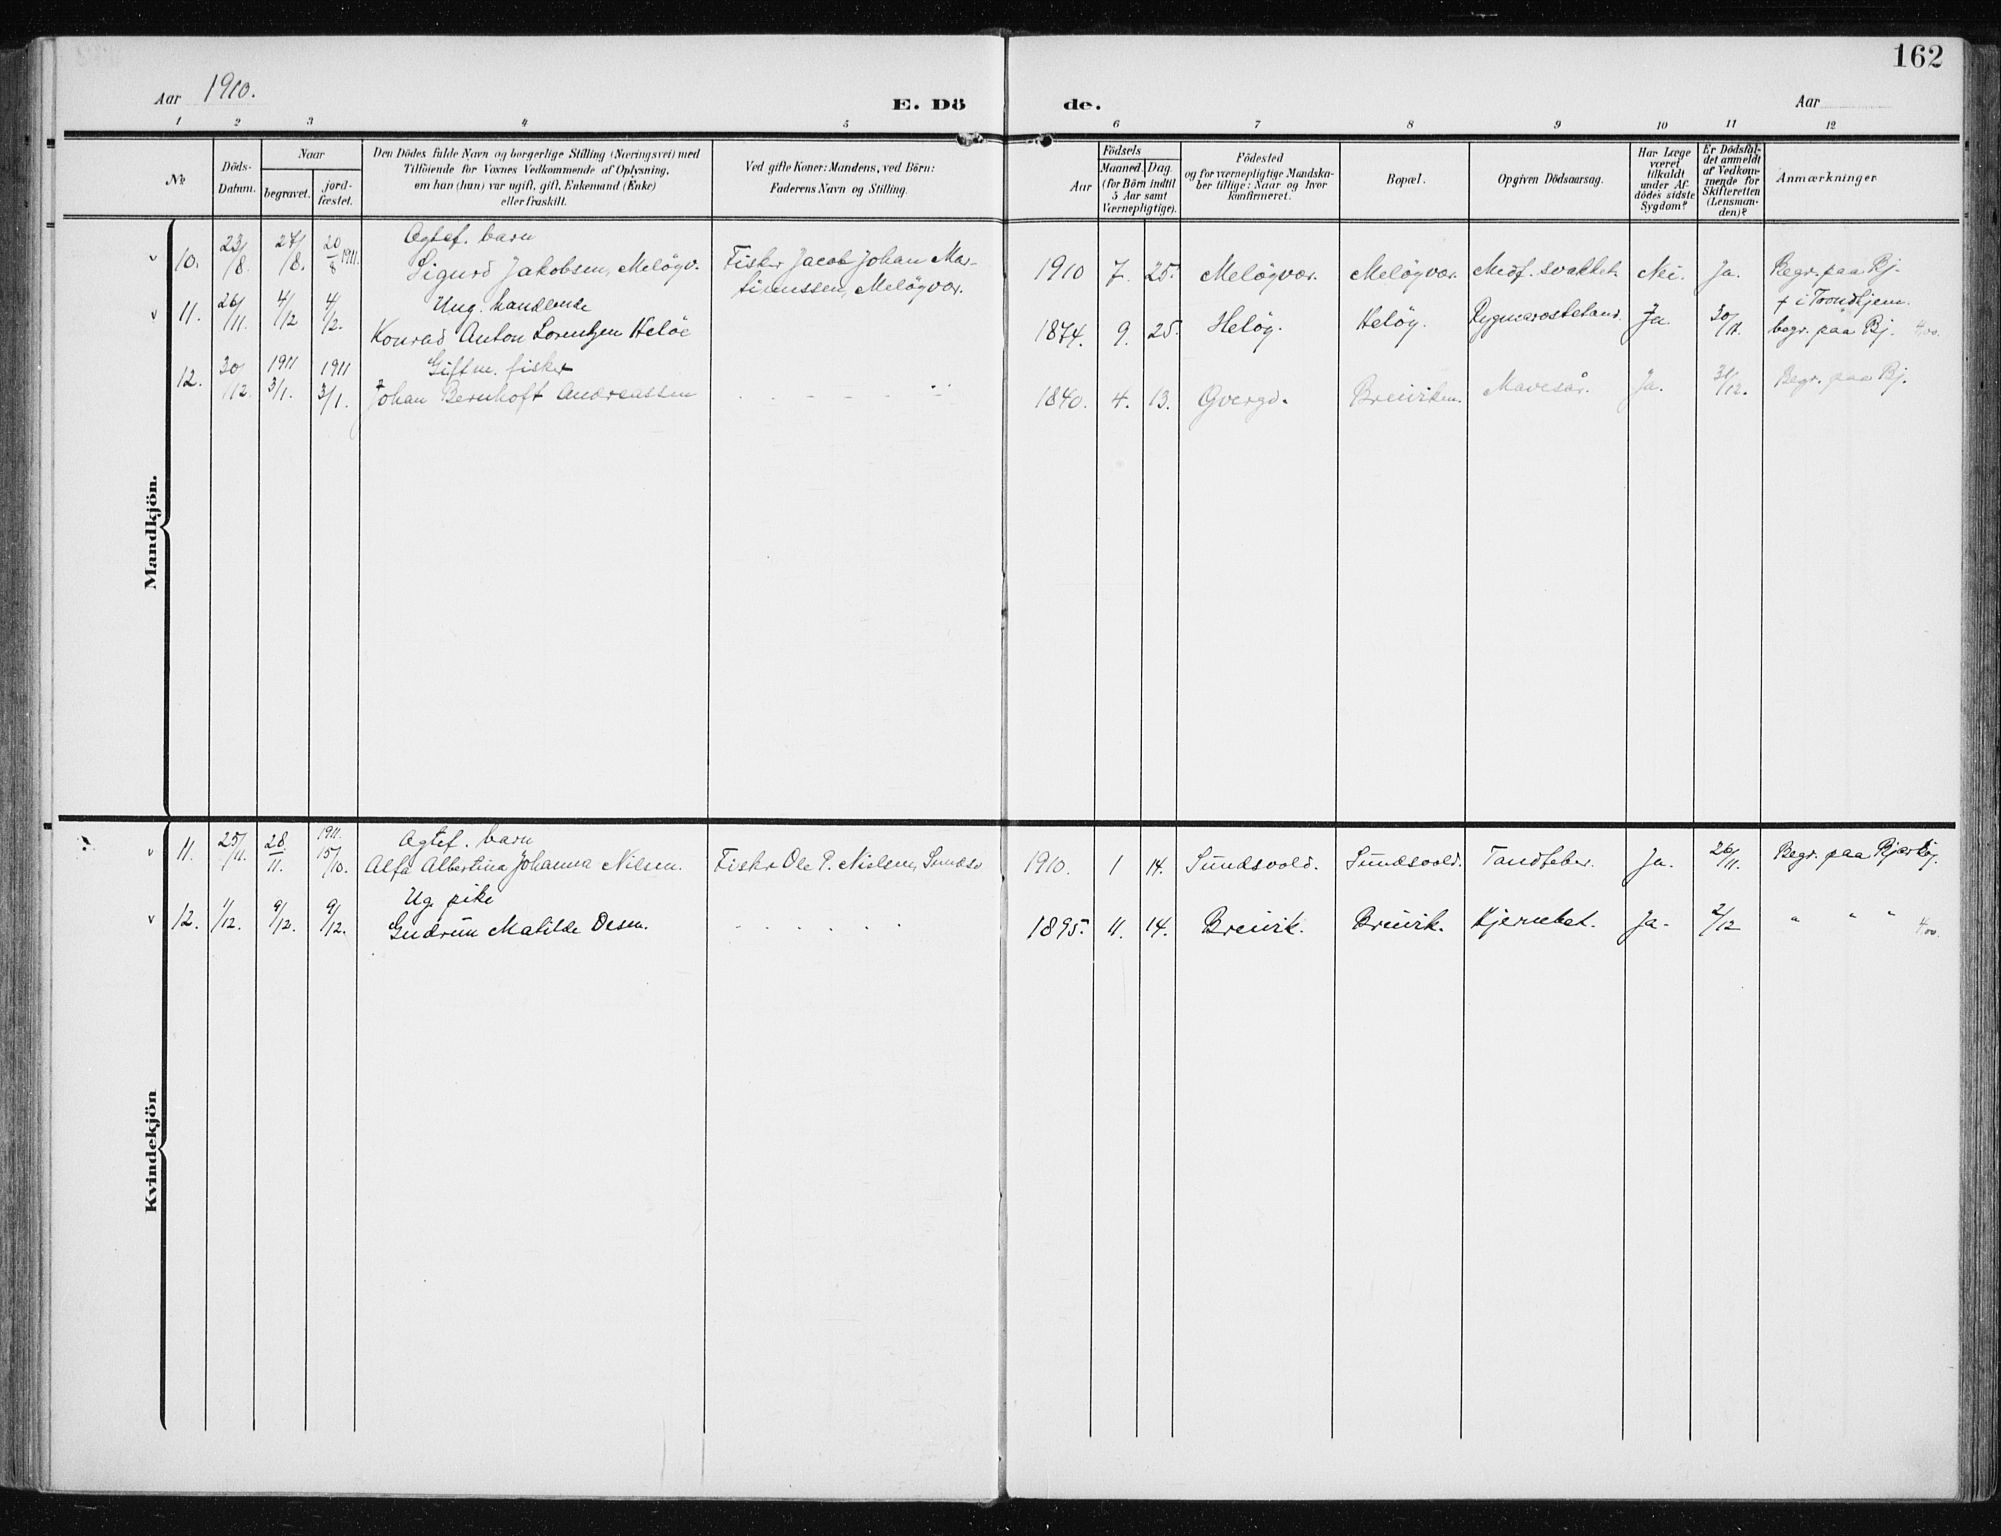 162
Aar 1910.
E. Dö de.
Aar
1 2 3 4 5 6 7 8 9 10 11 12
No
Döds-Datum.
Naar
begravet.
jord-fæstet.
Den Dödes fulde Navn og borgerlige Stilling (Næringsvei) med
Tilföiende for Voxnes Vedkommende af Oplysning,
om han (hun) var ugift, gift, Enkemand (Enke)
eller fraskilt.
Ved gifte Koner: Mandens, ved Börn:
Faderens Navn og Stilling.
Födsels
Aar
Maaned. Dag.
(for Börn indtil
5 Aar samt
Værnepligtige).
Födested
og for værnepligtige Mandska-
ber tillige: Naar og hvor
konfirmeret.
Bopæl.
Opgiven Dödsaarsag.
Har Læge
været
tilkaldt
under Af-
dödes sidste
Sygdom?
Er Dödsfal-
det anmeldt
af Vedkom-
mende for
Skifteretten
(Lensman-
den)?
Anmærkninger
Mandkjön.
v 10. 23/8. 27/8. 20/8 1911. Ægtef. barn
Sigurd Jakobsen, Meløyv. Fisker Jacob Johan Mar-
tinussen, Meløyvær. 1910 7. 25. Meløyvær. Meløyvær. Medf. svakhet. Nei. Ja. Begr. paa Bj.
v 11. 26/11. 4/12 4/12. Ung. handlende
Konrad Anton Lorentzen Heløe 1874. 9. 25. Heløy. Heløy. Ja. 30/11. † i Trondhjem.
begr. paa Bj. 4/00.
12. 30/12. 1911 3/1. 1911 3/1. Gift m. fisker
Johan Bernhoft Andreassen 1840. 4. 13. Breiviken. Mavesår. Ja. 31/12. Begr. paa Bj.
Kvindekjön
v 11. 25/11. 28/11. 1911. 15/10. Ægtef. barn
Alfa Albertina Johanna Nilsen. Fisker Ole P. Nielsen, Sundsv 1910. 1 14. Sundsvold. Sundsvold. Tandfeber. Ja. 26/11. Begr. paa Bjarkøy.
v 12. 1/12. 9/12. 9/12. Ug. pike
Gudrun Matilde Olsen. 1895. 11. 14. Breivik. Breivik. Ja. 2/12 " " " 4/00.